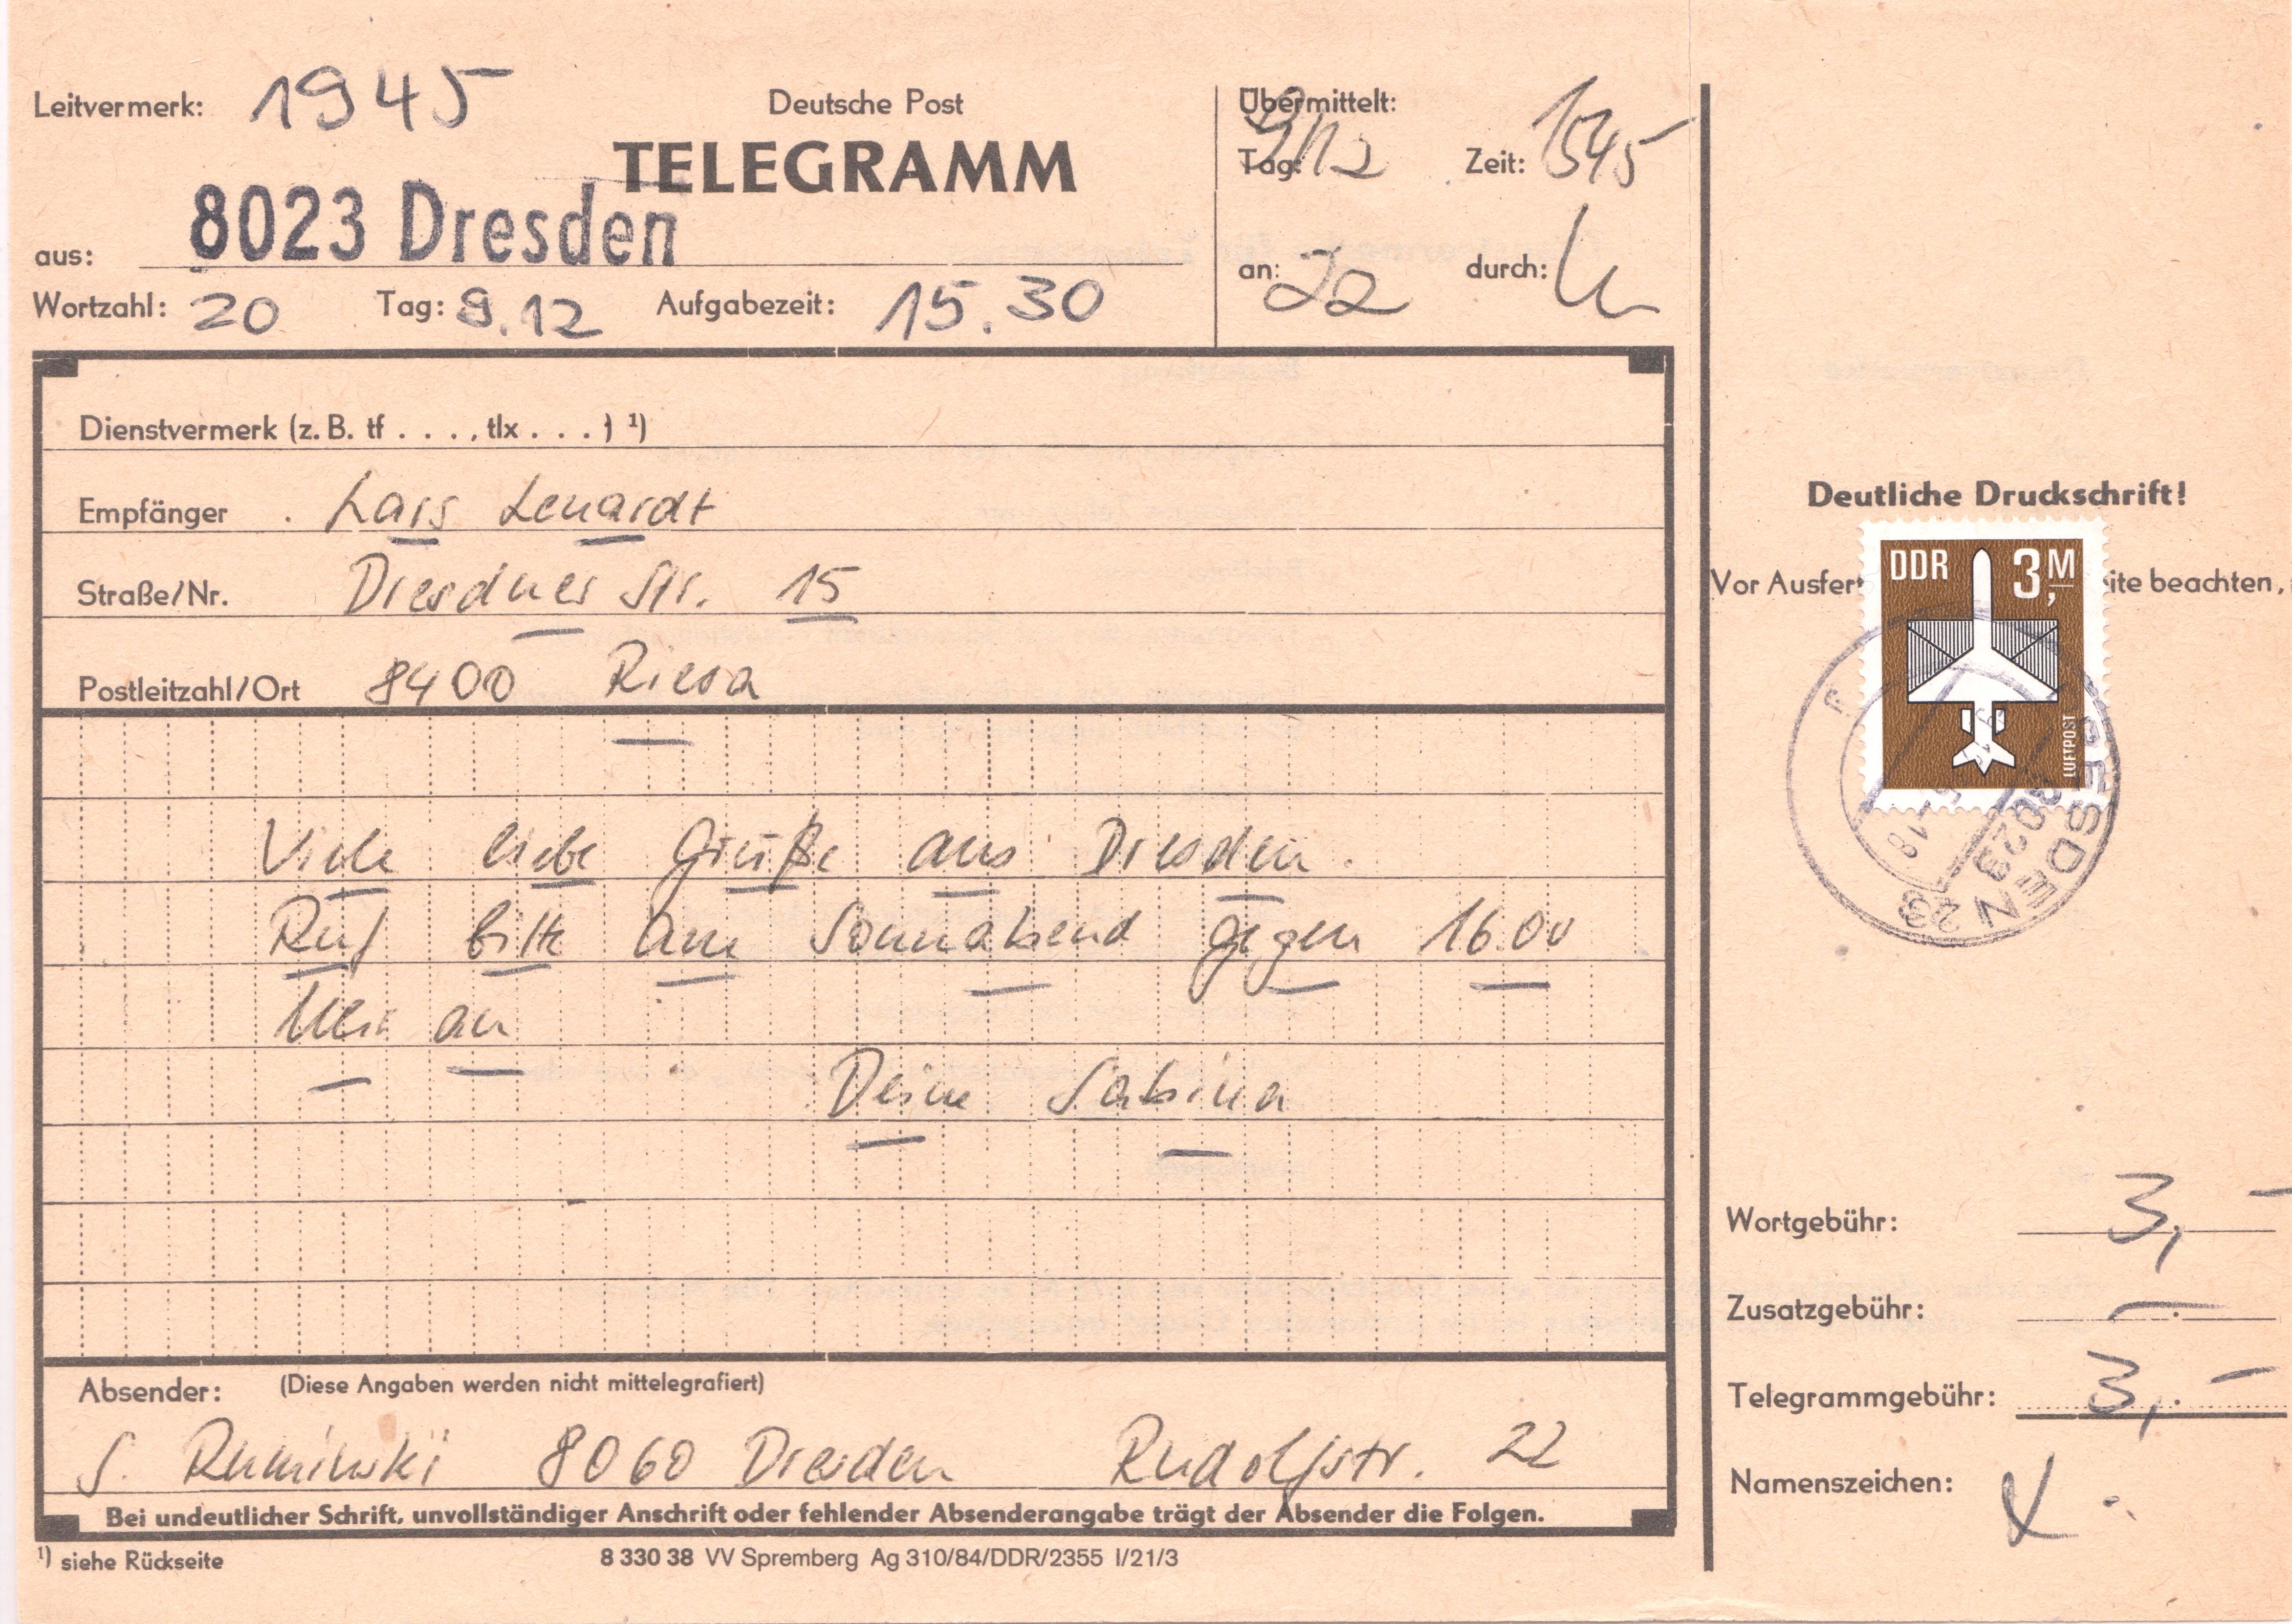 Leitvermerk: 1945
Deutsche Post
TELEGRAMM
aus: 8023 Dresden
Wortzahl: 20 Tag: 9.12 Aufgabezeit: 15.30
Übermittelt:
Tag: 9/12 Zeit: 1545
an: durch:
Dienstvermerk (z. B. tf . . . , tlx . . . ) ¹)
Empfänger Lars Lenardt
Straße/Nr. Dresdner Str. 15
Postleitzahl/Ort 8400 Riesa
Viele liebe Grüße aus Dresden.
Ruf bitte am Sonnabend gegen 16.00
Uhr an
Deine Sabina
Absender: (Diese Angaben werden nicht mittelegrafiert)
S. Ruminski 8060 Dresden Rudolfstr. 22
Bei undeutlicher Schrift, unvollständiger Anschrift oder fehlender Absenderangabe trägt der Absender die Folgen.
¹) siehe Rückseite
8 330 38 VV Spremberg Ag 310/84/DDR/2355 I/21/3
Deutliche Druckschrift!
Vor Ausfert ite beachten,
DDR 3,M
LUFTPOST
DRESDEN 23
8023
Wortgebühr: 3,–
Zusatzgebühr: –
Telegrammgebühr: 3,–
Namenszeichen: